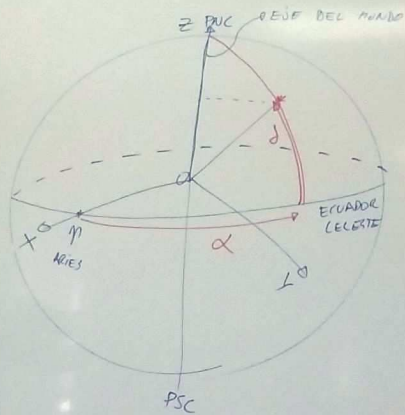 Z PNC
EJE DEL MUNDO
δ
ECUADOR
CELESTE
X
ARIES
α
PSC